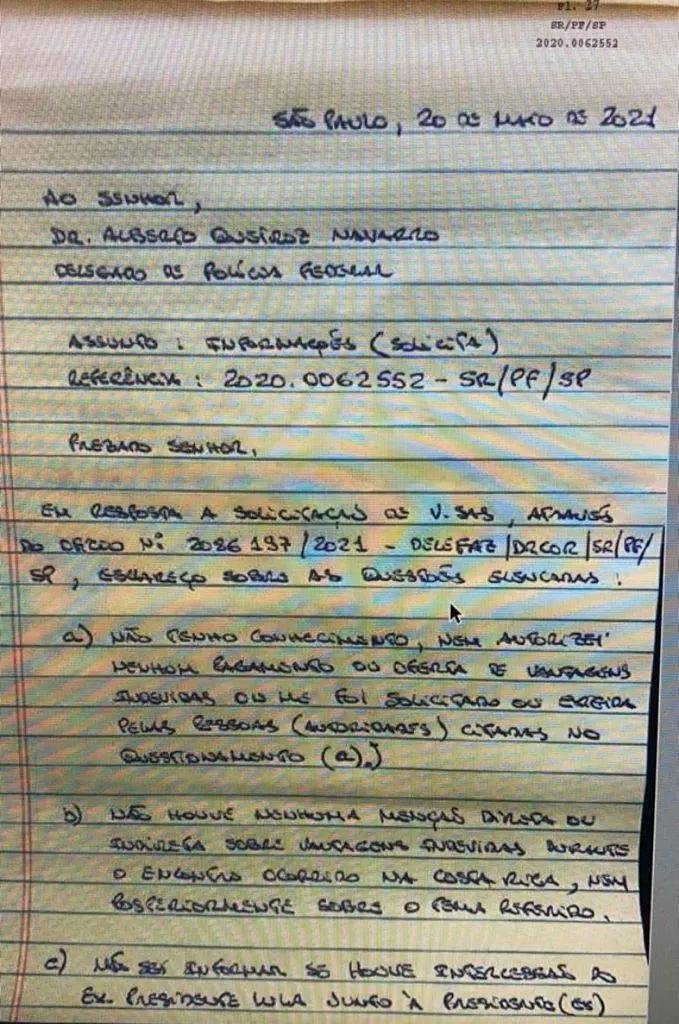 Fl. 27
SR/PF/SP
2020.0062552
SÃO PAULO, 20 DE MAIO DE 2021
AO SENHOR,
DR. ALBERTO QUEIROZ NAVARRO
DELEGADO DE POLÍCIA FEDERAL
ASSUNTO : INFORMAÇÕES (SOLICITA)
REFERÊNCIA : 2020.0062552 - SR/PF/SP
PREZADO SENHOR,
EM RESPOSTA A SOLICITAÇÃO DE V.SAS, ATRAVÉS
DO OFÍCIO Nº 2086197/2021 - DELEFAZ/DRCOR/SR/PF/
SP, ESCLAREÇO SOBRE AS QUESTÕES ELENCADAS :
a) NÃO TENHO CONHECIMENTO, NEM AUTORIZEI
NENHUM PAGAMENTO OU OFERTA DE VANTAGENS
INDEVIDAS OU ME FOI SOLICITADO OU EXIGIDA
PELAS PESSOAS (AUTORIDADES) CITADAS NO
QUESTIONAMENTO (a).)
b) NÃO HOUVE NENHUMA MENÇÃO DIRETA OU
INDIRETA SOBRE VANTAGENS INDEVIDAS DURANTE
O ENCONTRO OCORRIDO NA COSTA RICA, NEM
POSTERIORMENTE SOBRE O TEMA REFERIDO.
c) NÃO SEI INFORMAR SE HOUVE INTERCESSÃO DO
EX. PRESIDENTE LULA JUNTO À PRESIDENTE(ES)